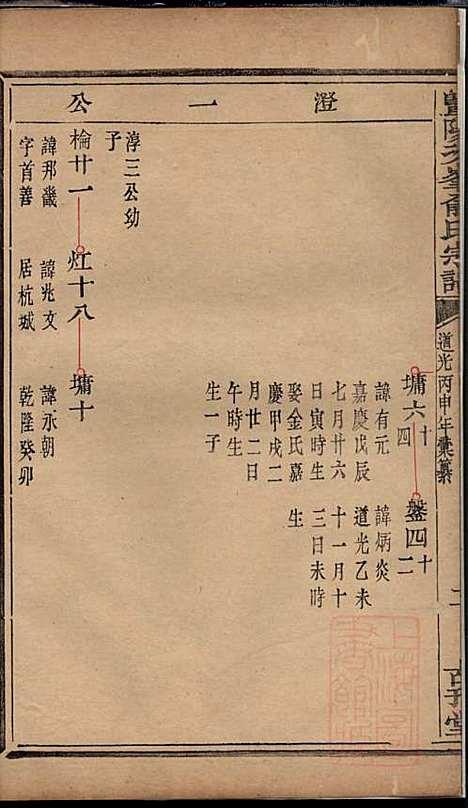 暨陽次峯俞氏宗譜
道光丙申年彙纂
二
百子堂
澄一公
墉六十四
盤四十二
諱有元
諱炳炎
嘉慶戊辰
道光乙未
七月廿六
十一月十
日寅時生
三日未時
娶金氏嘉
生
慶甲戌二
月廿二日
午時生
生一子
淳三公幼
子
檎廿一
灴十八
墉十
諱邦畿
諱兆文
諱承朝
字首善
居杭城
乾隆癸卯